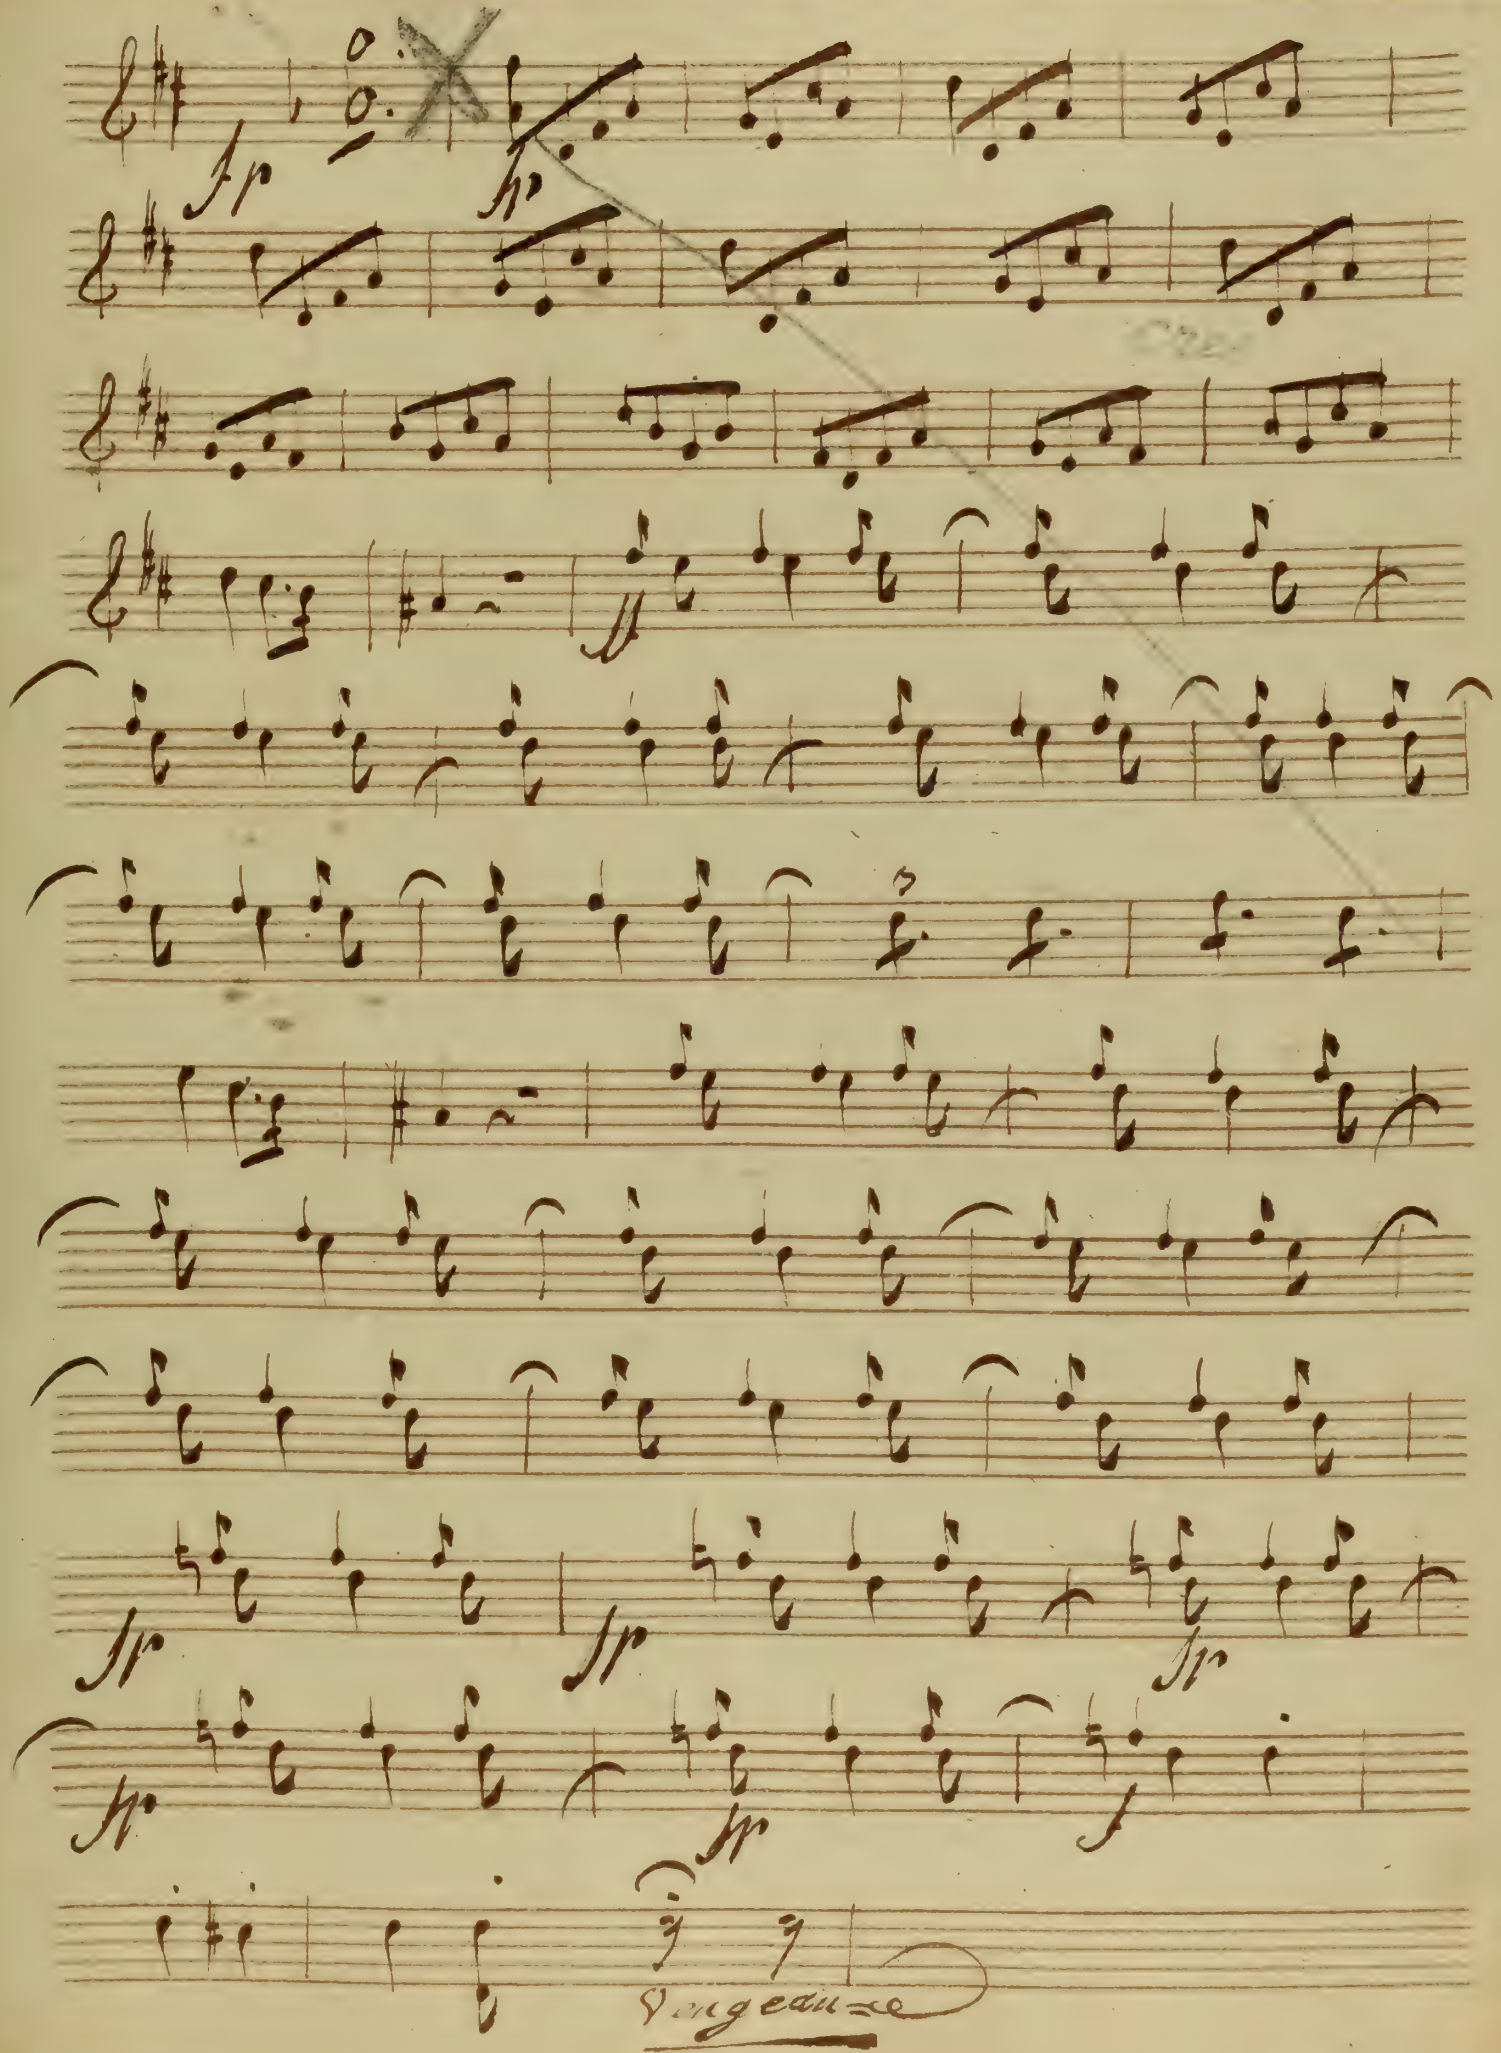 fp fp
Cres
ff
fp fp fp
fp fp f
Vengeance